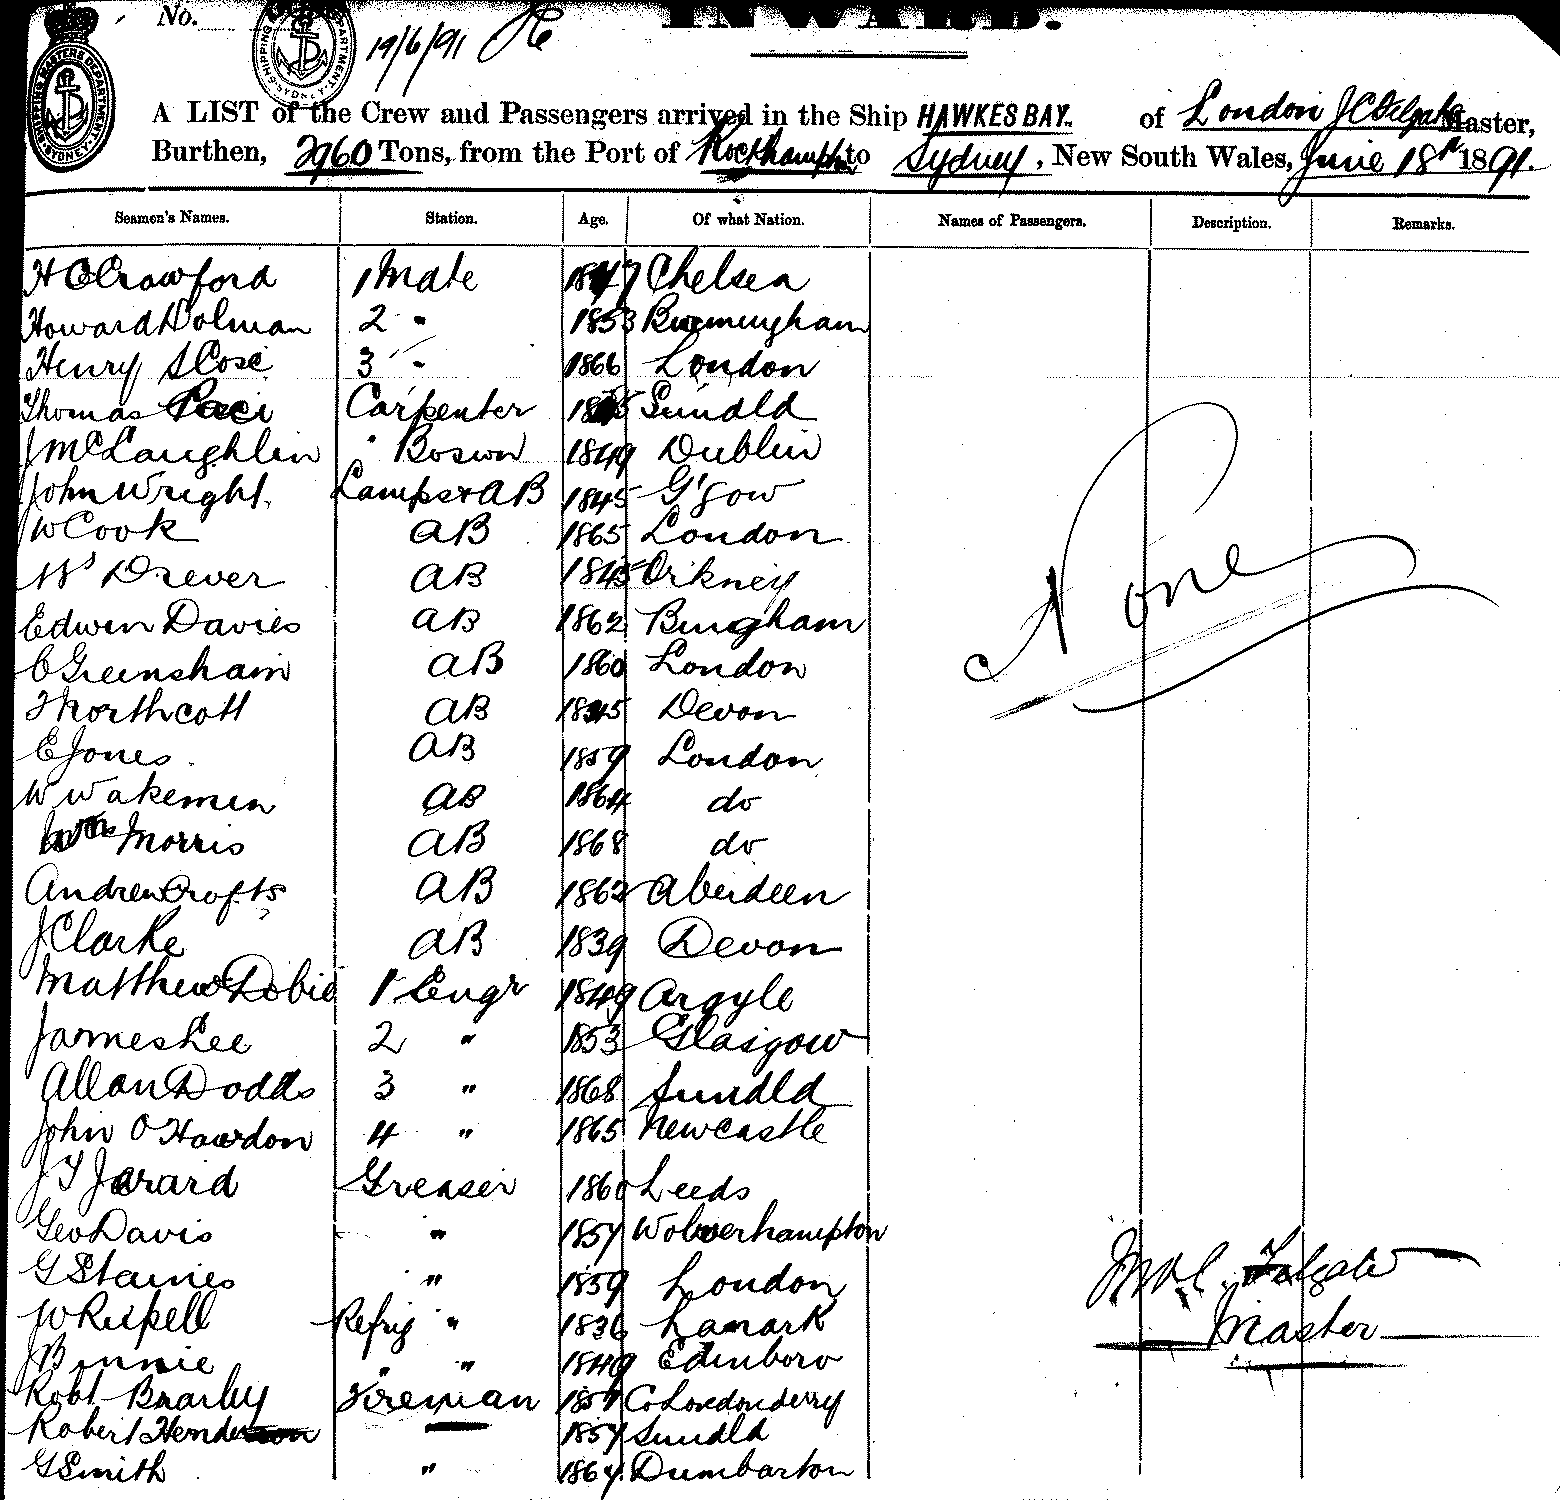 No.
19/6/91
INWARD.
A LIST of the Crew and Passengers arrived in the Ship HAWKES BAY. of London J C Folgate Master,
Burthen, 2960 Tons, from the Port of Rockhampton to Sydney, New South Wales, June 18th 1891.
Seamen's Names. Station. Age. Of what Nation. Names of Passengers. Description. Remarks.
H C Crawford 1 Mate 1847 Chelsea
Howard Dolman 2 " 1853 Birmingham
Henry S Cose 3 " 1866 London
Thomas Carpenter Sundld
J McLaughlin " Bosun 1849 Dublin
John Wright Lamps & AB 1845 G'gow
W Cook AB 1865 London
W Drever AB 1845 Orkney
Edwin Davies AB 1862 Bingham
C Greensham AB 1860 London
F Northcott AB 1845 Devon
E Jones AB 1859 London
W Wakeman AB 1864 do
Wm Morris AB 1868 do
Andrew Crofts AB 1862 Aberdeen
J Clarke AB 1839 Devon
Matthew Dobie 1 Engr 1849 Argyle
James Lee 2 " 1853 Glasgow
Allan Dodds 3 " 1868 Sundld
John O Hawdon 4 " 1865 Newcastle
J T Jarard Greaser 1860 Leeds
Geo Davis " 1857 Wolverhampton
G Staines " 1859 London
W Russell Refrig " 1836 Lanark
J Binnie " " 1849 Edinboro
Robt Brarley Fireman 1857 Co Londonderry
Robert Henderson 1857 Sundld
G Smith " 1864 Dumbarton
None
Jno C. Folgate
Master